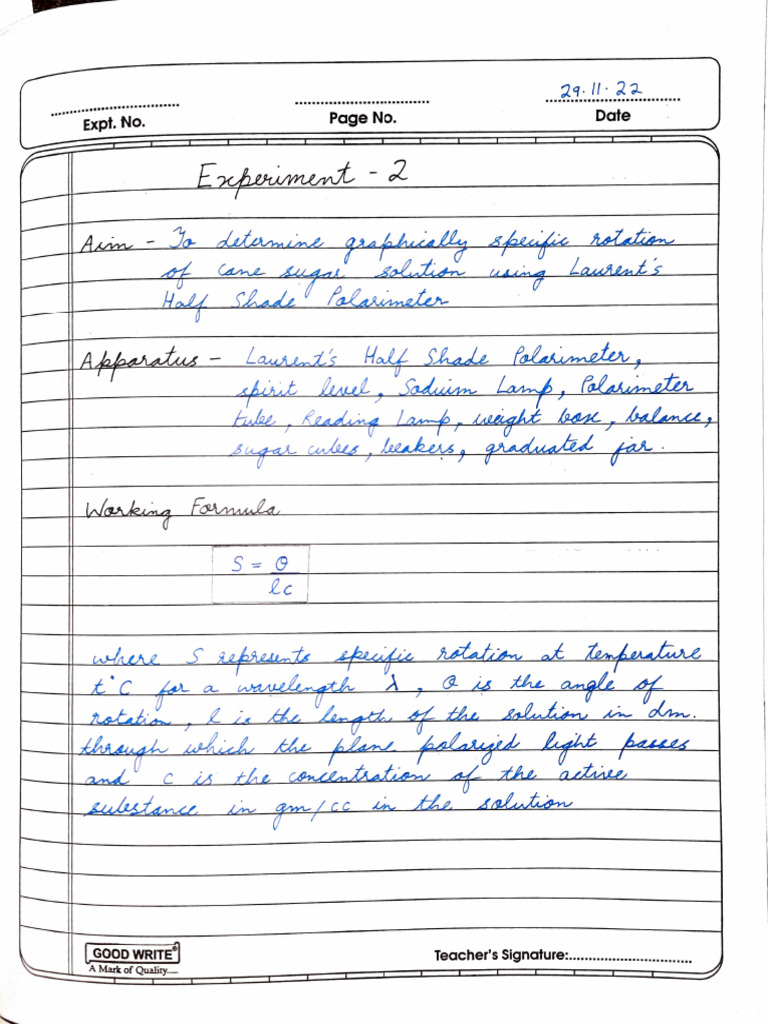 29.11.22
Expt. No.
Page No.
Date
Experiment - 2
Aim - To determine graphically specific rotation
of cane sugar solution using Laurent's
Half Shade Polarimeter
Apparatus - Laurent's Half Shade Polarimeter,
spirit level, Sodium Lamp, Polarimeter
tube, Reading Lamp, weight box, balance,
sugar cubes, beakers, graduated jar.
Working Formula
S = θ
lc
where S represents specific rotation at temperature
t°C for a wavelength λ, θ is the angle of
rotation, l is the length of the solution in dm.
through which the plane polarized light passes
and c is the concentration of the active
substance in gm/cc in the solution
GOOD WRITE®
A Mark of Quality....
Teacher's Signature: